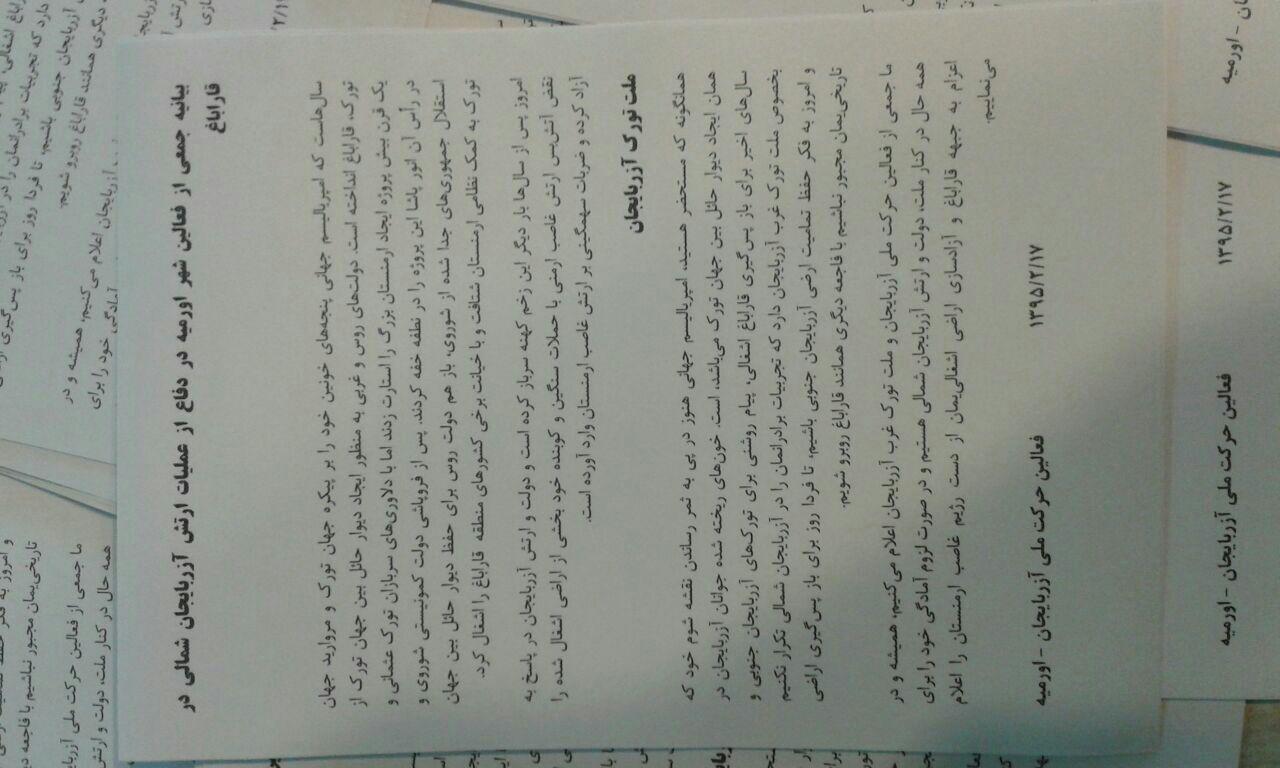 بیانیه جمعی از فعالین شهر اورمیه در دفاع از عملیات ارتش آزربایجان شمالی در
قاراباغ
سال‌هاست که امپریالیسم جهانی پنجه‌های خونین خود را بر پیکره جهان تورک و مروارید جهان
تورک، قاراباغ انداخته است. دولت‌های روس و غربی به منظور ایجاد دیوار حائل بین جهان تورک از
یک قرن پیش پروژه ایجاد ارمنستان بزرگ را استارت زدند اما با دلاوری‌های سربازان تورک عثمانی و
در رأس آن انور پاشا این پروژه را در نطفه خفه کردند. پس از فروپاشی دولت کمونیستی شوروی و
استقلال جمهوری‌های جدا شده از شوروی، باز هم دولت روس برای حفظ دیوار حائل بین جهان
تورک به کمک نظامی ارمنستان شتافت و با خیانت برخی کشورهای منطقه قاراباغ را اشغال کرد.
امروز پس از سال‌ها بار دیگر این زخم کهنه سرباز کرده است و دولت و ارتش آزربایجان در پاسخ به
نقض آتش‌بس ارتش غاصب ارمنی با حملات سنگین و کوبنده خود بخشی از اراضی اشغال شده را
آزاد کرده و ضربات سهمگینی بر ارتش غاصب ارمنستان وارد آورده است.
ملت تورک آزربایجان
همانگونه که مستحضر هستید، امپریالیسم جهانی هنوز در پی به ثمر رساندن نقشه شوم خود که
همان ایجاد دیوار حائل بین جهان تورک می‌باشد، است. خون‌های ریخته شده جوانان آزربایجان در
سال‌های اخیر برای باز پس‌گیری قاراباغ اشغالی، پیام روشنی برای تورک‌های آزربایجان جنوبی و
بخصوص ملت تورک غرب آزربایجان دارد که تجربیات برادرانمان را در آزربایجان شمالی تکرار نکنیم
و امروز به فکر حفظ تمامیت ارضی آزربایجان جنوبی باشیم، تا فردا روز برای باز پس‌گیری اراضی
تاریخی‌یمان مجبور نباشیم با فاجعه دیگری همانند قاراباغ روبرو شویم.
ما جمعی از فعالین حرکت ملی آزربایجان و ملت تورک غرب آزربایجان اعلام می‌کنیم، همیشه و در
همه حال در کنار ملت، دولت و ارتش آزربایجان شمالی هستیم و در صورت لزوم آمادگی خود را برای
اعزام به جبهه قاراباغ و آزادسازی اراضی اشغالی‌یمان از دست رژیم غاصب ارمنستان را اعلام
می‌نماییم.
فعالین حرکت ملی آزربایجان - اورمیه ۱۳۹۵/۲/۱۷
فعالین حرکت ملی آزربایجان - اورمیه ۱۳۹۵/۲/۱۷